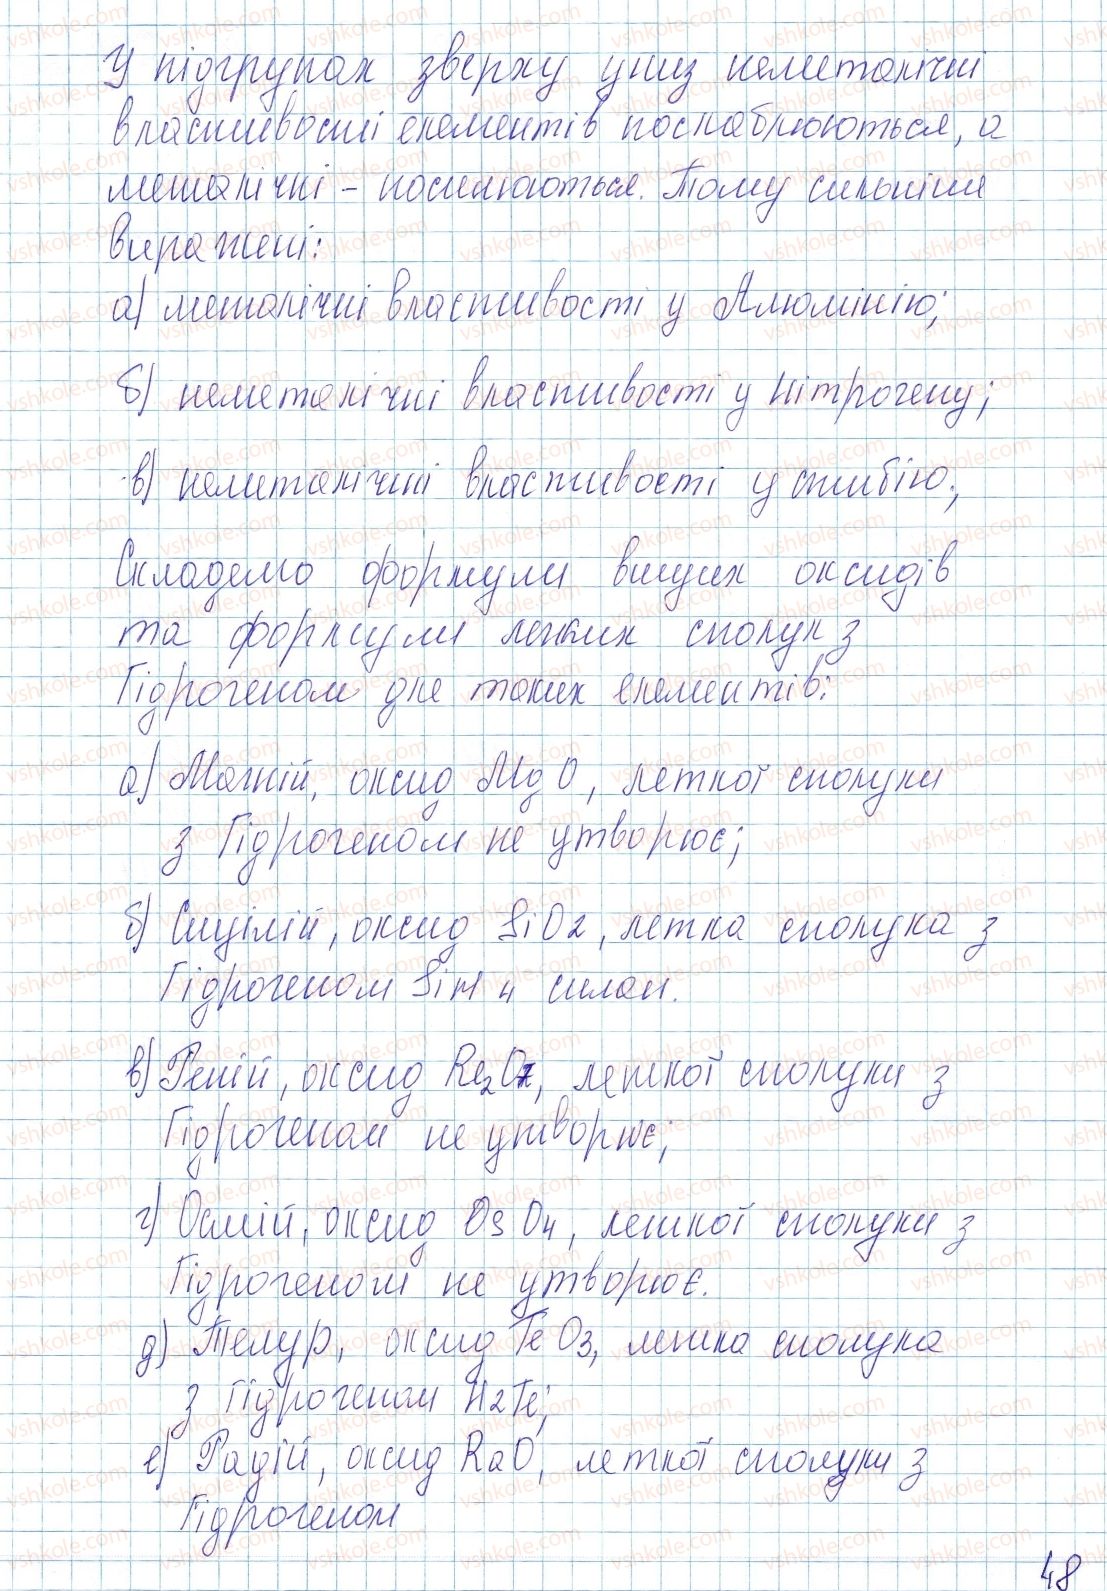 У підгрупах зверху униз неметалічні
властивості елементів послаблюються, а
металічні - посилюються. Тому сильніше
виражені:
а) металічні властивості у Алюмінію;
б) неметалічні властивості у Нітрогену;
в) неметалічні властивості у стибію;
Складемо формули вищих оксидів
та формули летких сполук з
Гідрогеном для таких елементів:
а) Магній, оксид MgO, леткої сполуки
з Гідрогеном не утворює;
б) Силілій, оксид SiO2, летка сполука з
Гідрогеном SiH4 силан.
в) Реній, оксид Re2O7, леткої сполуки з
Гідрогеном не утворює;
г) Осмій, оксид OsO4, леткої сполуки з
Гідрогеном не утворює.
д) Телур, оксид TeO3, летка сполука
з Гідрогеном H2Te;
е) Радій, оксид RaO, леткої сполуки з
Гідрогеном
48